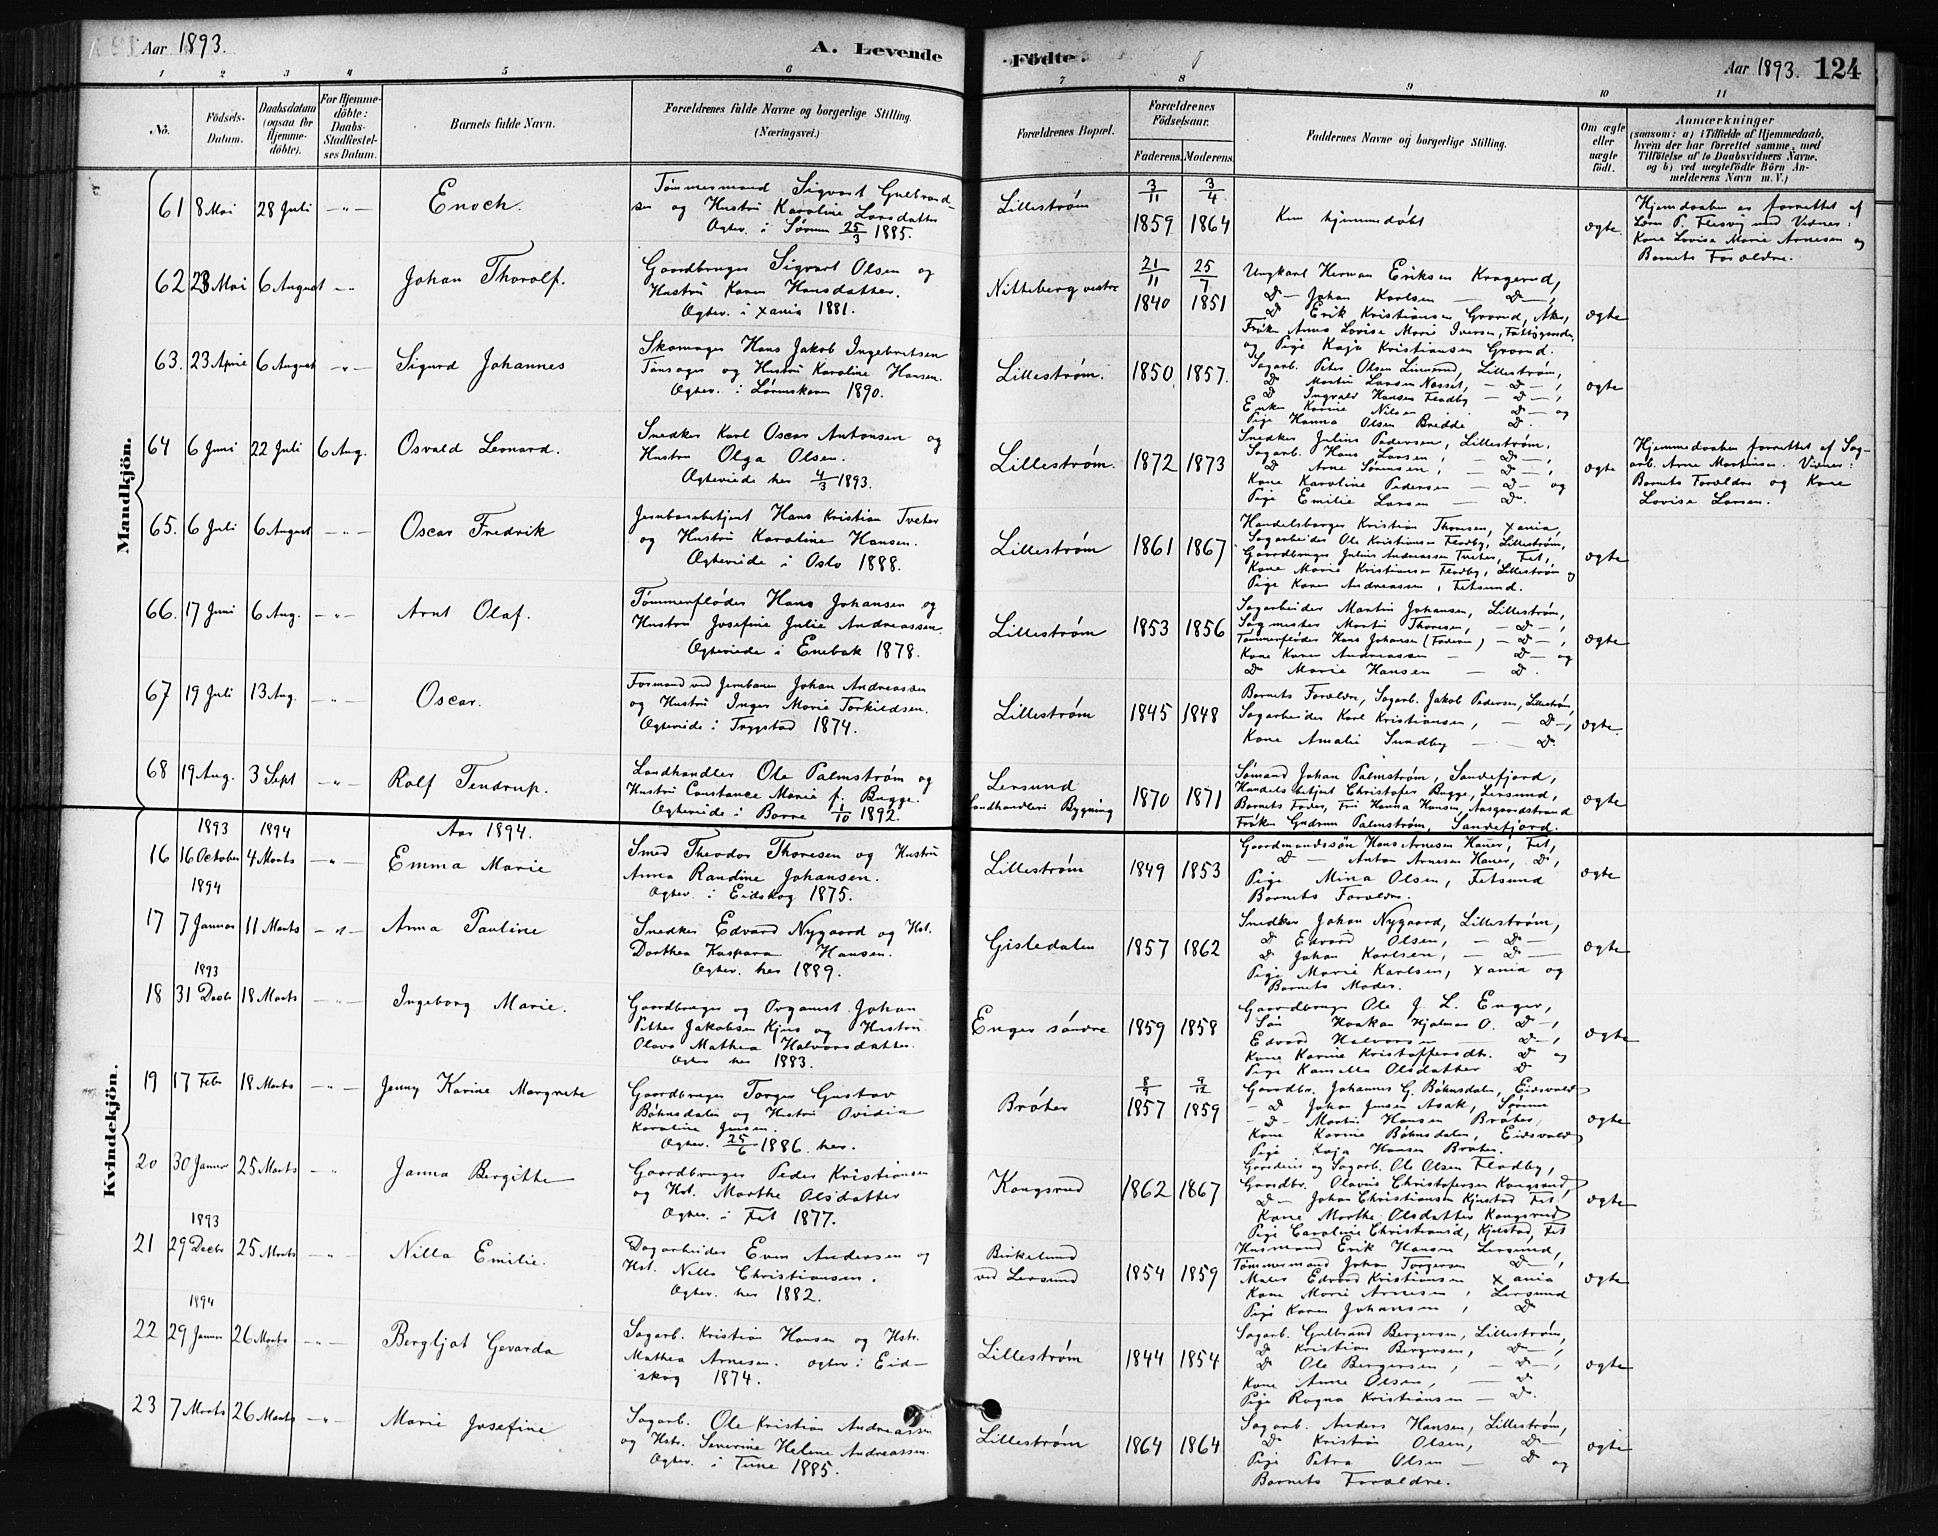 Aar 1893.
A. Levende Födte.
Aar 1893. 124
1 2 3 4 5 6 7 8 9 10 11
No.
Födsels-Datum.
Daabsdatum (ogsaa for Hjemme-döbte).
For Hjemme-döbte: Daabs-Stadfæstel-ses Datum.
Barnets fulde Navn.
Forældrenes fulde Navne og borgerlige Stilling. (Næringsvei.)
Forældrenes Bopæl.
Forældrenes Födselsaar.
Faderens. Moderens.
Faddernes Navne og borgerlige Stilling.
Om ægte eller uægte födt.
Anmærkninger
(saasom: a) i Tilfælde af Hjemmedaab, hvem der har forrettet samme, med Tilföielse af to Daabsvidners Navne, og b) ved uægtefödte Börn An-melderens Navn m. V.)
Mandkjön.
61 8 Mai 28 Juli -"- Enoch.
Tømmermand Sigvart Gulbrand-
sen og Hustru Karoline Larsdatter
Ægtev. i Sørum 25/3 1885.
Lillestrøm 3/11 1859 3/4 1864
Kun hjemmedøbt
ægte
Hjemdaaben er forrettet af
Lærer P. Flesvig med Vidner:
Kone Lovisa Marie Arnesen og
Barnets Forældre.
62 23 Mai 6 August -"- Johan Thorolf.
Gaardbruger Sigvart Olsen og
Hustru Karen Hansdatter.
Ægtev. i Xania 1881.
Nitteberg vestre 21/11 1840 25/7 1851
Ungkarl Herman Eriksen Kragerud,
D - Johan Karlsen - D -,
D Erik Kristiansen Grorud, Aker,
Frøken Anna Lovise Marie Iversen, Fattiggaarden
og Pige Kaja Kristiansen Grorud.
ægte
63. 23 April 6 August -"- Sigurd Johannes
Skomager Hans Jakob Ingebretsen
Tansager og Hustru Karoline Hansen.
Ægtev. i Lørenskoven 1890.
Lillestrøm. 1850 1857.
Sagarb. Peter Olsen Linnerud, Lillestrøm,
D Martin Larsen Nesset, - D -,
D Ingvald Hansen Fladby - D -,
Enke Karine Nilsen - D - og
Pige Hanna Olsen Bredde D.
ægte
64 6 Juni 22 Juli 6 Aug. Osvald Leonard.
Snedker Karl Oscar Antonsen og
Hustru Olga Olsen.
Ægteviede her 4/3 1893.
Lillestrøm. 1872 1873
Snedker Julius Pedersen, Lillestrøm,
Sagarb. Hans Larsen, - D -,
D Arne Sørensen, - D -,
Kone Karoline Pedersen - D - og
Pige Emilie Larsen - D.
ægte
Hjemmedaaben forrettet af Sag-
arb. Arne Martinsen. Vidner:
Barnets Forældre og Kone
Lovise Larsen.
65. 6 Juli 6 August -"- Oscar Fredrik
Jernbanebetjent Hans Kristian Tveter
og Hustru Karoline Hansen.
Ægteviede i Oslo 1888.
Lillestrøm 1861 1867
Handelsborger Kristian Thoresen, Xania,
Sagarbeider Ole Kristiansen Fladby, Lillestrøm,
Gaardbruger Julius Andreassen Tveter, Fet,
Kone Marie Kristiansen Fladby, Lillestrøm og
Pige Karen Andreassen, Fetsund.
ægte
66. 17 Juni 6 Aug. -"- Arnt Olaf.
Tømmerfløder Hans Johansen og
Hustru Josefine Julie Andreassen.
Ægteviede i Enebak 1878.
Lillestrøm 1853 1856
Sagarbeider Martin Johansen, Lillestrøm,
Sagmester Martin Thoresen, - D -,
Tømmerfløder Hans Johansen (Faderen) - D -,
Kone Karen Andreassen - D - og
D Marie Hansen - D.
ægte
67 19 Juli 13 Aug. -"- Oscar.
Formand ved Jernbanen Johan Andreassen
og Hustru Inger Marie Torkildsen.
Ægteviede i Trygstad 1874.
Lillestrøm 1845 1848
Barnets Forældre, Sagarb. Jakob Pedersen, Lillestrøm,
Sagarbeider Karl Kristiansen, - D -,
Kone Amalie Sundby - D.
ægte
68 19 Aug. 3 Sept -"- Rolf Tendrup.
Landhandler Ole Palmstrøm og
Hustru Constance Marie f. Bugge.
Ægteviede i Borre 1/10 1892.
Lersund
Landhandleri Bygning 1870 1871
Sømand Johan Palmstrøm, Sandefjord,
Handelsbetjent Christofer Bugge, Lersund,
Barnets Fader, Fru Hanna Hansen, Aasgaardstrand
Frøken Gudrun Palmstrøm, Sandefjord.
ægte
Kvindekjön.
1893 1894 Aar 1894.
16 16 October 4 Marts -"- Emma Marie
Smed Theodor Thoresen og Hustru
Anna Randine Johansen.
Ægtev. i Eidskog 1875.
Lillestrøm 1849 1853
Gaardmandssøn Hans Arnesen Hauer, Fet,
D - Anton Arnesen Hauer, D,
Pige Mina Olsen, Fetsund
Barnets Forældre.
ægte
1894
17 7 Januar 11 Marts -"- Anna Pauline
Snedker Edvard Nygaard og Hst.
Dorthea Kaspara Hansen.
Ægtev. her 1889.
Gisledalen 1857 1862
Snedker Johan Nygaard, Lillestrøm,
D Edvard Olsen, - D -
D Johan Karlsen, - D -
Pige Marie Karlsen, Xania og
Barnets Moder.
ægte
1893
18 31 Decbr 18 Marts -"- Ingeborg Marie.
Gaardbruger og Organist Johan
Petter Jakobsen Kjus og Hustru
Olava Mathea Halvorsdatter.
Ægtev her 1883.
Enger søndre 1859 1858
Gaardbruger Ole J. L. Enger,
Søn Haakon Hjalmar O. D -,
Edvard Halvorsen - D -,
Kone Karine Kristoffersdtr. D og
Pige Kamilla Olsdatter D
ægte
19 17 Febr 18 Marts -"- Jenny Karine Margrete
Gaardbruger Torger Gustav
Bøhnsdalen og Hustru Ovidia
Karoline Jensen.
Ægtev. 25/6 1886 her.
Brøter 8/9 1857 9/12 1859
Gaardbr. Johannes G. Bøhnsdalen, Eidsvold
- D Johan Jensen Asak, Sørum
- D - Martin Hansen Brøter,
Kone Karine Bøhnsdalen, Eidsvold
Pige Kaja Hansen Brøter.
ægte
20 30 Januar 25 Marts -"- Janna Bergitte
Gaardbruger Peder Kristiansen
og Hst. Marthe Olsdatter
Ægtev. i Fet 1877.
Kongsrud 1862 1867
Gaardeier og Sagarb. Ole Olsen Fladby,
Gaardbr. Olavus Christofersen Kongsrud,
D - Johan Christiansen Kjustad Fet
Kone Marthe Olsdatter Kongsrud
Pige Caroline Christiansd, Kjustad, Fet
ægte
1893
21 29 Decbr 25 Marts -"- Nilla Emilie.
Dagarbeider Even Andersen og
Hst. Nilla Christiansen.
Ægtev. her 1882.
Birkelund
ved Lersund 1854 1859
Husmand Erik Hansen Lersund,
Tømmermand Johan Torgersen D -,
Maler Edvard Kristiansen Xania
Kone Marie Arnesen, Lersund
Pige Karen Johansen, D
ægte
1894
22 29 Januar 26 Marts -"- Bergljot Gevarda
Sagarb. Kristian Hansen og Hstr.
Mathea Arnesen. Ægtev. i Eid-
skog 1874.
Lillestrøm 1844 1854
Sagarb. Gulbrand Bergersen, Lillestrøm,
D Kristian Bergersen, D -,
D Ole Bergersen, - D -,
Kone Anne Olsen, - D
Pige Ragna Kristiansen - D.
ægte
23 7 Marts 26 Marts -"- Marie Josefine
Sagarb. Ole Kristian Andreassen
og Hstr. Severine Helene Andreassen.
Ægtev. i Tune 1885.
Lillestrøm 1864 1864
Sagarb. Anders Hansen, Lillestrøm,
D Kristian Olsen, D -
Pige Petra Olsen - D og
Barnets Forældre.
ægte